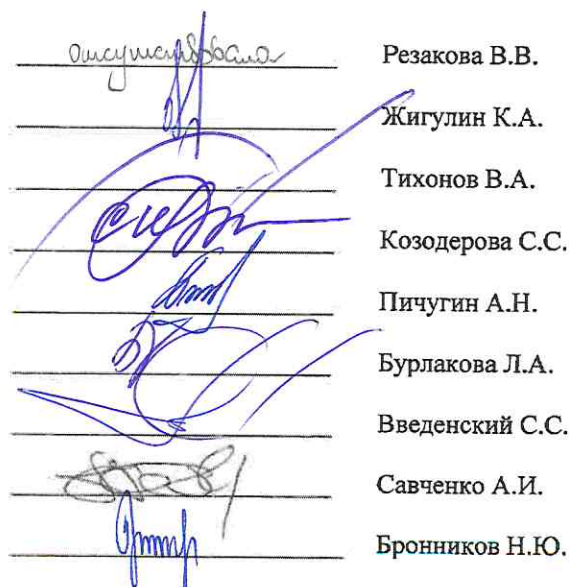 отсутствовала Резакова В.В.
Жигулин К.А.
Тихонов В.А.
Козодерова С.С.
Пичугин А.Н.
Бурлакова Л.А.
Введенский С.С.
Савченко А.И.
Бронников Н.Ю.